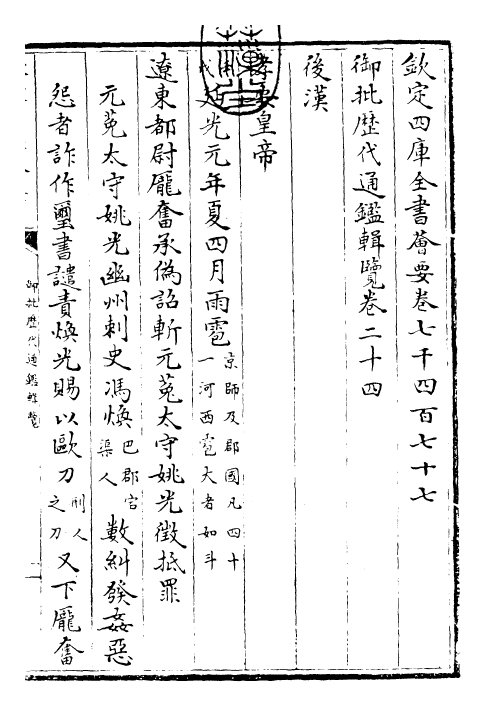 欽定四庫全書薈要卷七千四百七十七
御批歷代通鑑輯覽卷二十四
後漢
孝安皇帝
延光元年夏四月雨雹京師及郡國凡四十一河西雹大者如斗
遼東都尉龐奮承偽詔斬元菟太守姚光徵抵罪
元菟太守姚光幽州刺史馮煥巴郡宕渠人數糾發姦惡
怨者詐作璽書譴責煥光賜以歐刀刑人之刀又下龐奮
御批歷代通鑑輯覽
一